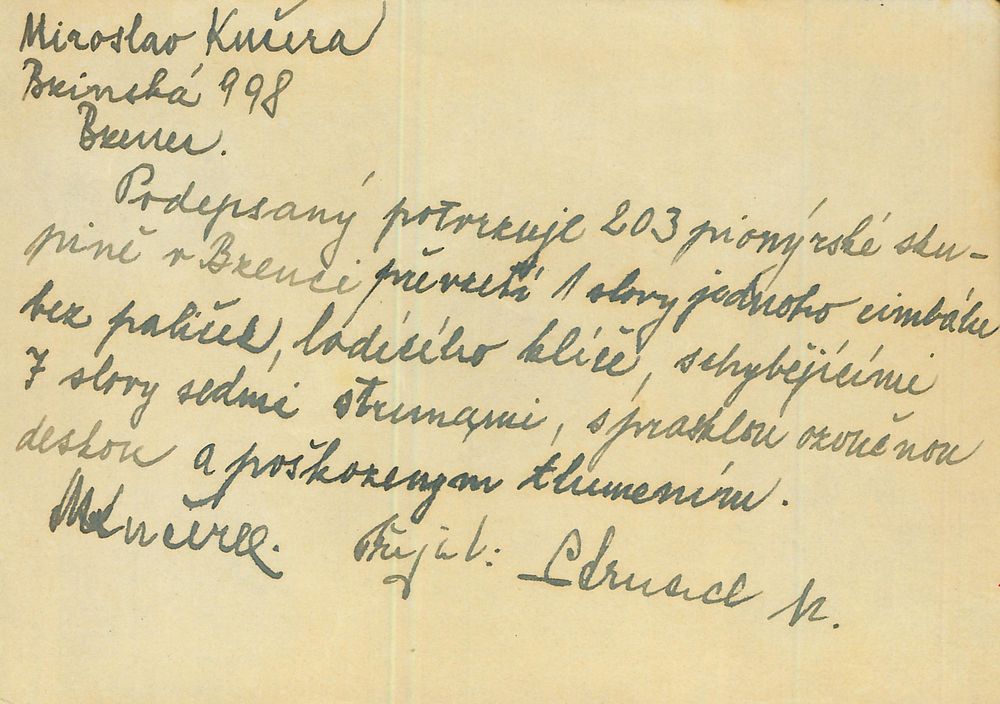 Miroslav Kučera
998
Bzenec.
Podepsaný potvrzuje 203 pionýrské sku-
pině v Bzenci převzetí 1 slovy jednoho cimbálu
bez paliček, ladícího klíče, schybějícími
7 slovy sedmi strunami, s prasklou ozvučnou
deskou a poškozeným tlumením.
MKučera. Přijal: